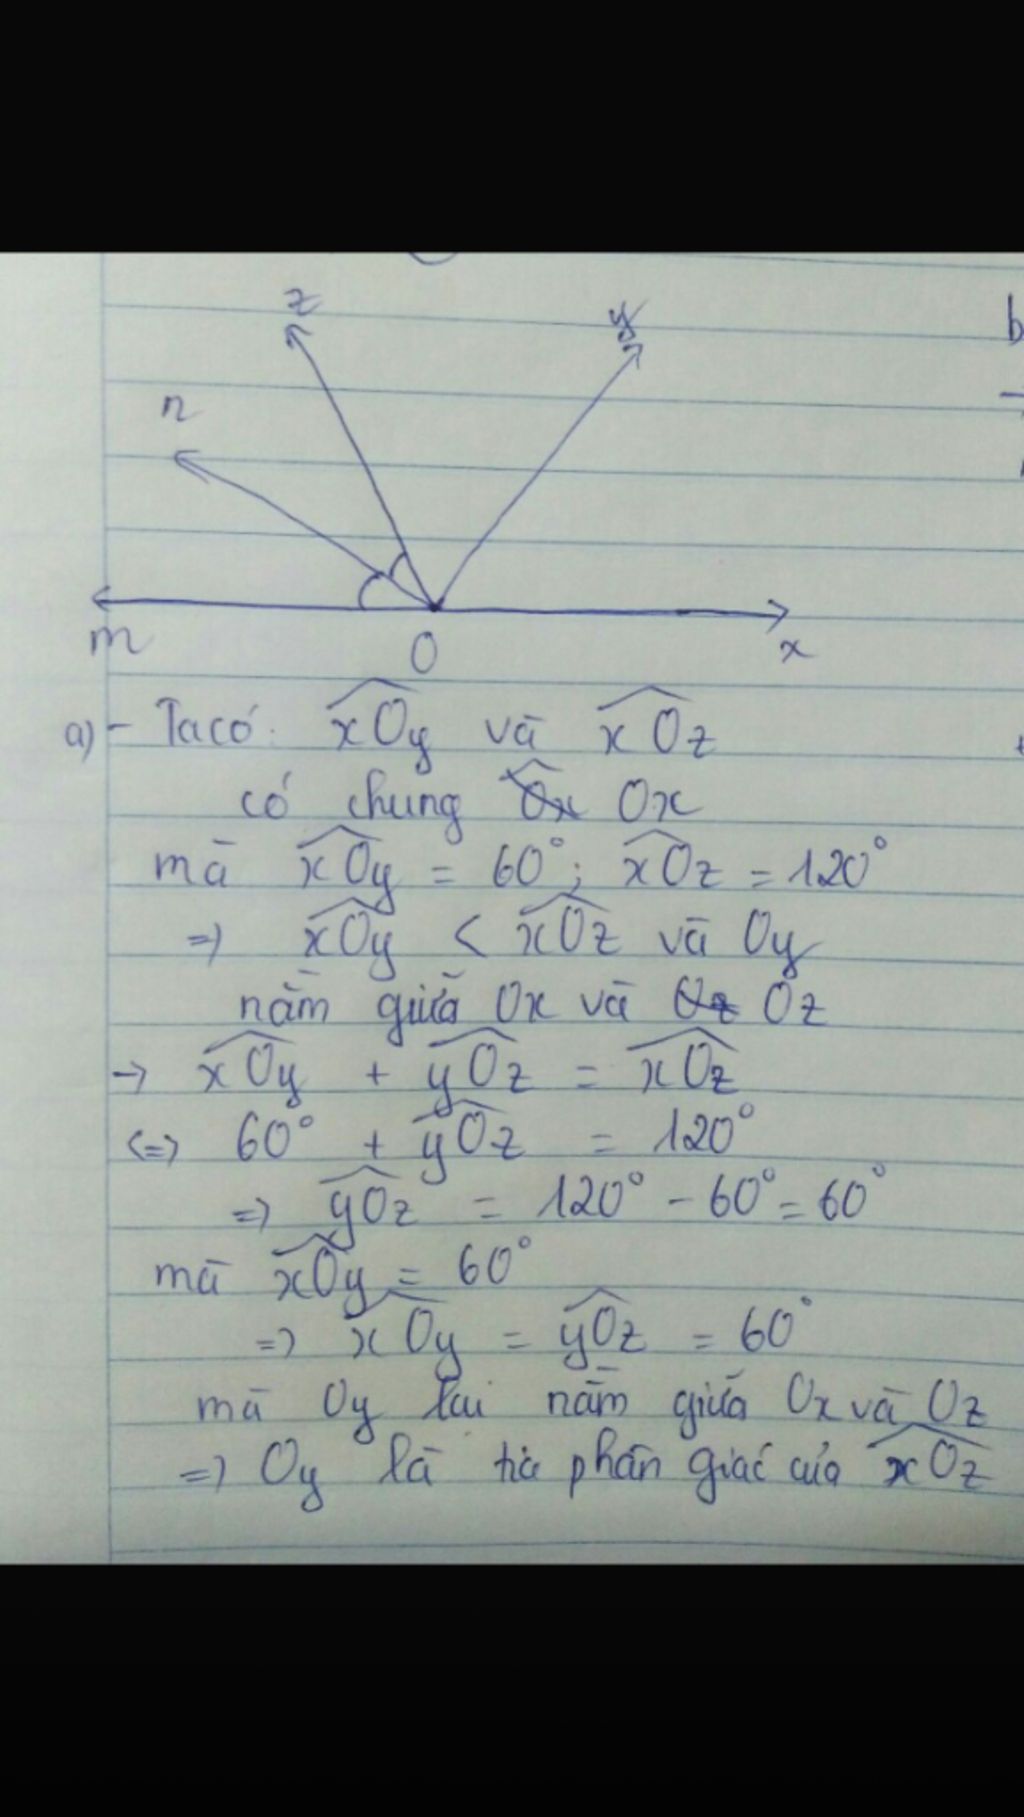 z
y
n
m
O
x
b
a) - Ta có: xOy và xOz
có chung Ox
mà xOy = 60°; xOz = 120°
=> xOy < xOz và Oy
nằm giữa Ox và Oz
-> xOy + yOz = xOz
<=> 60° + yOz = 120°
=> yOz = 120° - 60° = 60°
mà xOy = 60°
=> xOy = yOz = 60°
mà Oy lại nằm giữa Ox và Oz
=> Oy là tia phân giác của xOz